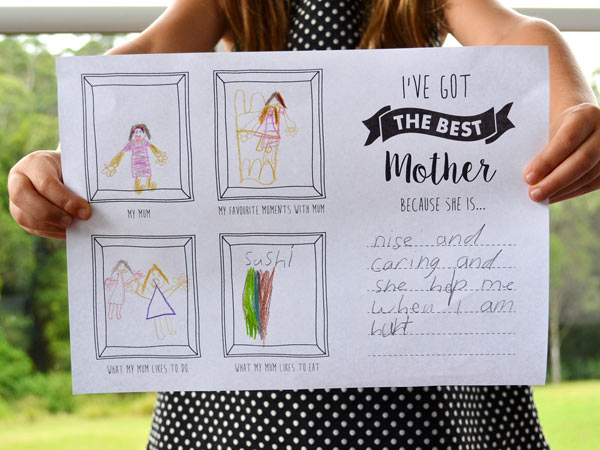 I'VE GOT
THE BEST
Mother
BECAUSE SHE IS...
nise and
caring and
she hep me
when I am
hurt
MY MUM
MY FAVOURITE MOMENTS WITH MUM
sushi
WHAT MY MUM LIKES TO DO
WHAT MY MUM LIKES TO EAT